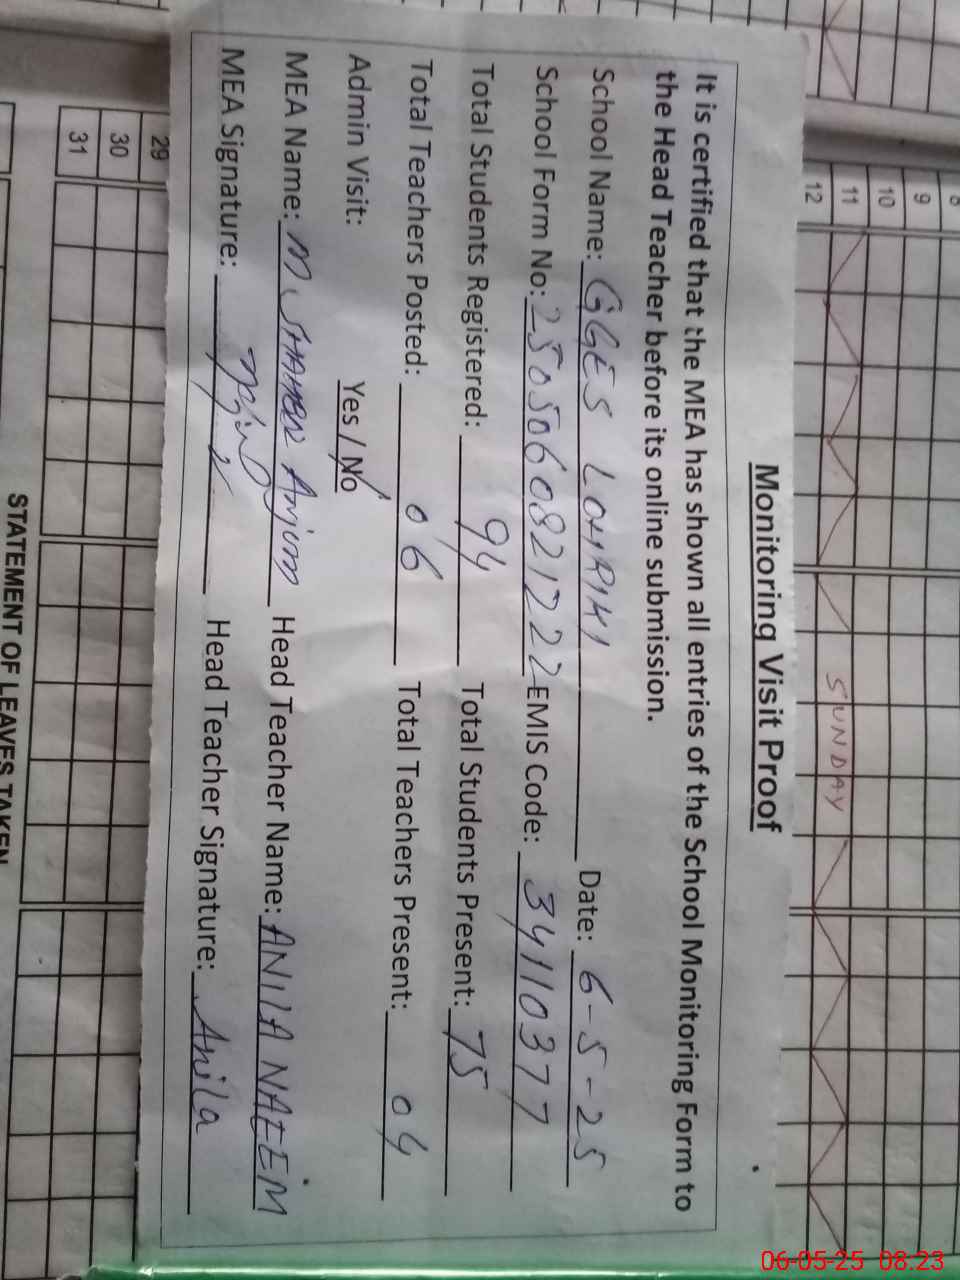 Monitoring Visit Proof
It is certified that the MEA has shown all entries of the School Monitoring Form to
the Head Teacher before its online submission.
School Name: GGES LOHRIKI Date: 6-5-25
School Form No: 2505060821222 EMIS Code: 34110377
Total Students Registered: 94 Total Students Present: 75
Total Teachers Posted: 06 Total Teachers Present: 04
Admin Visit: Yes / No
MEA Name: M. Anjum Head Teacher Name: ANILA NAEEM
MEA Signature: Head Teacher Signature: Anila
8
9
10
11 SUNDAY
12
29
30
31
STATEMENT OF LEAVES TAKEN
06-05-25 08:23